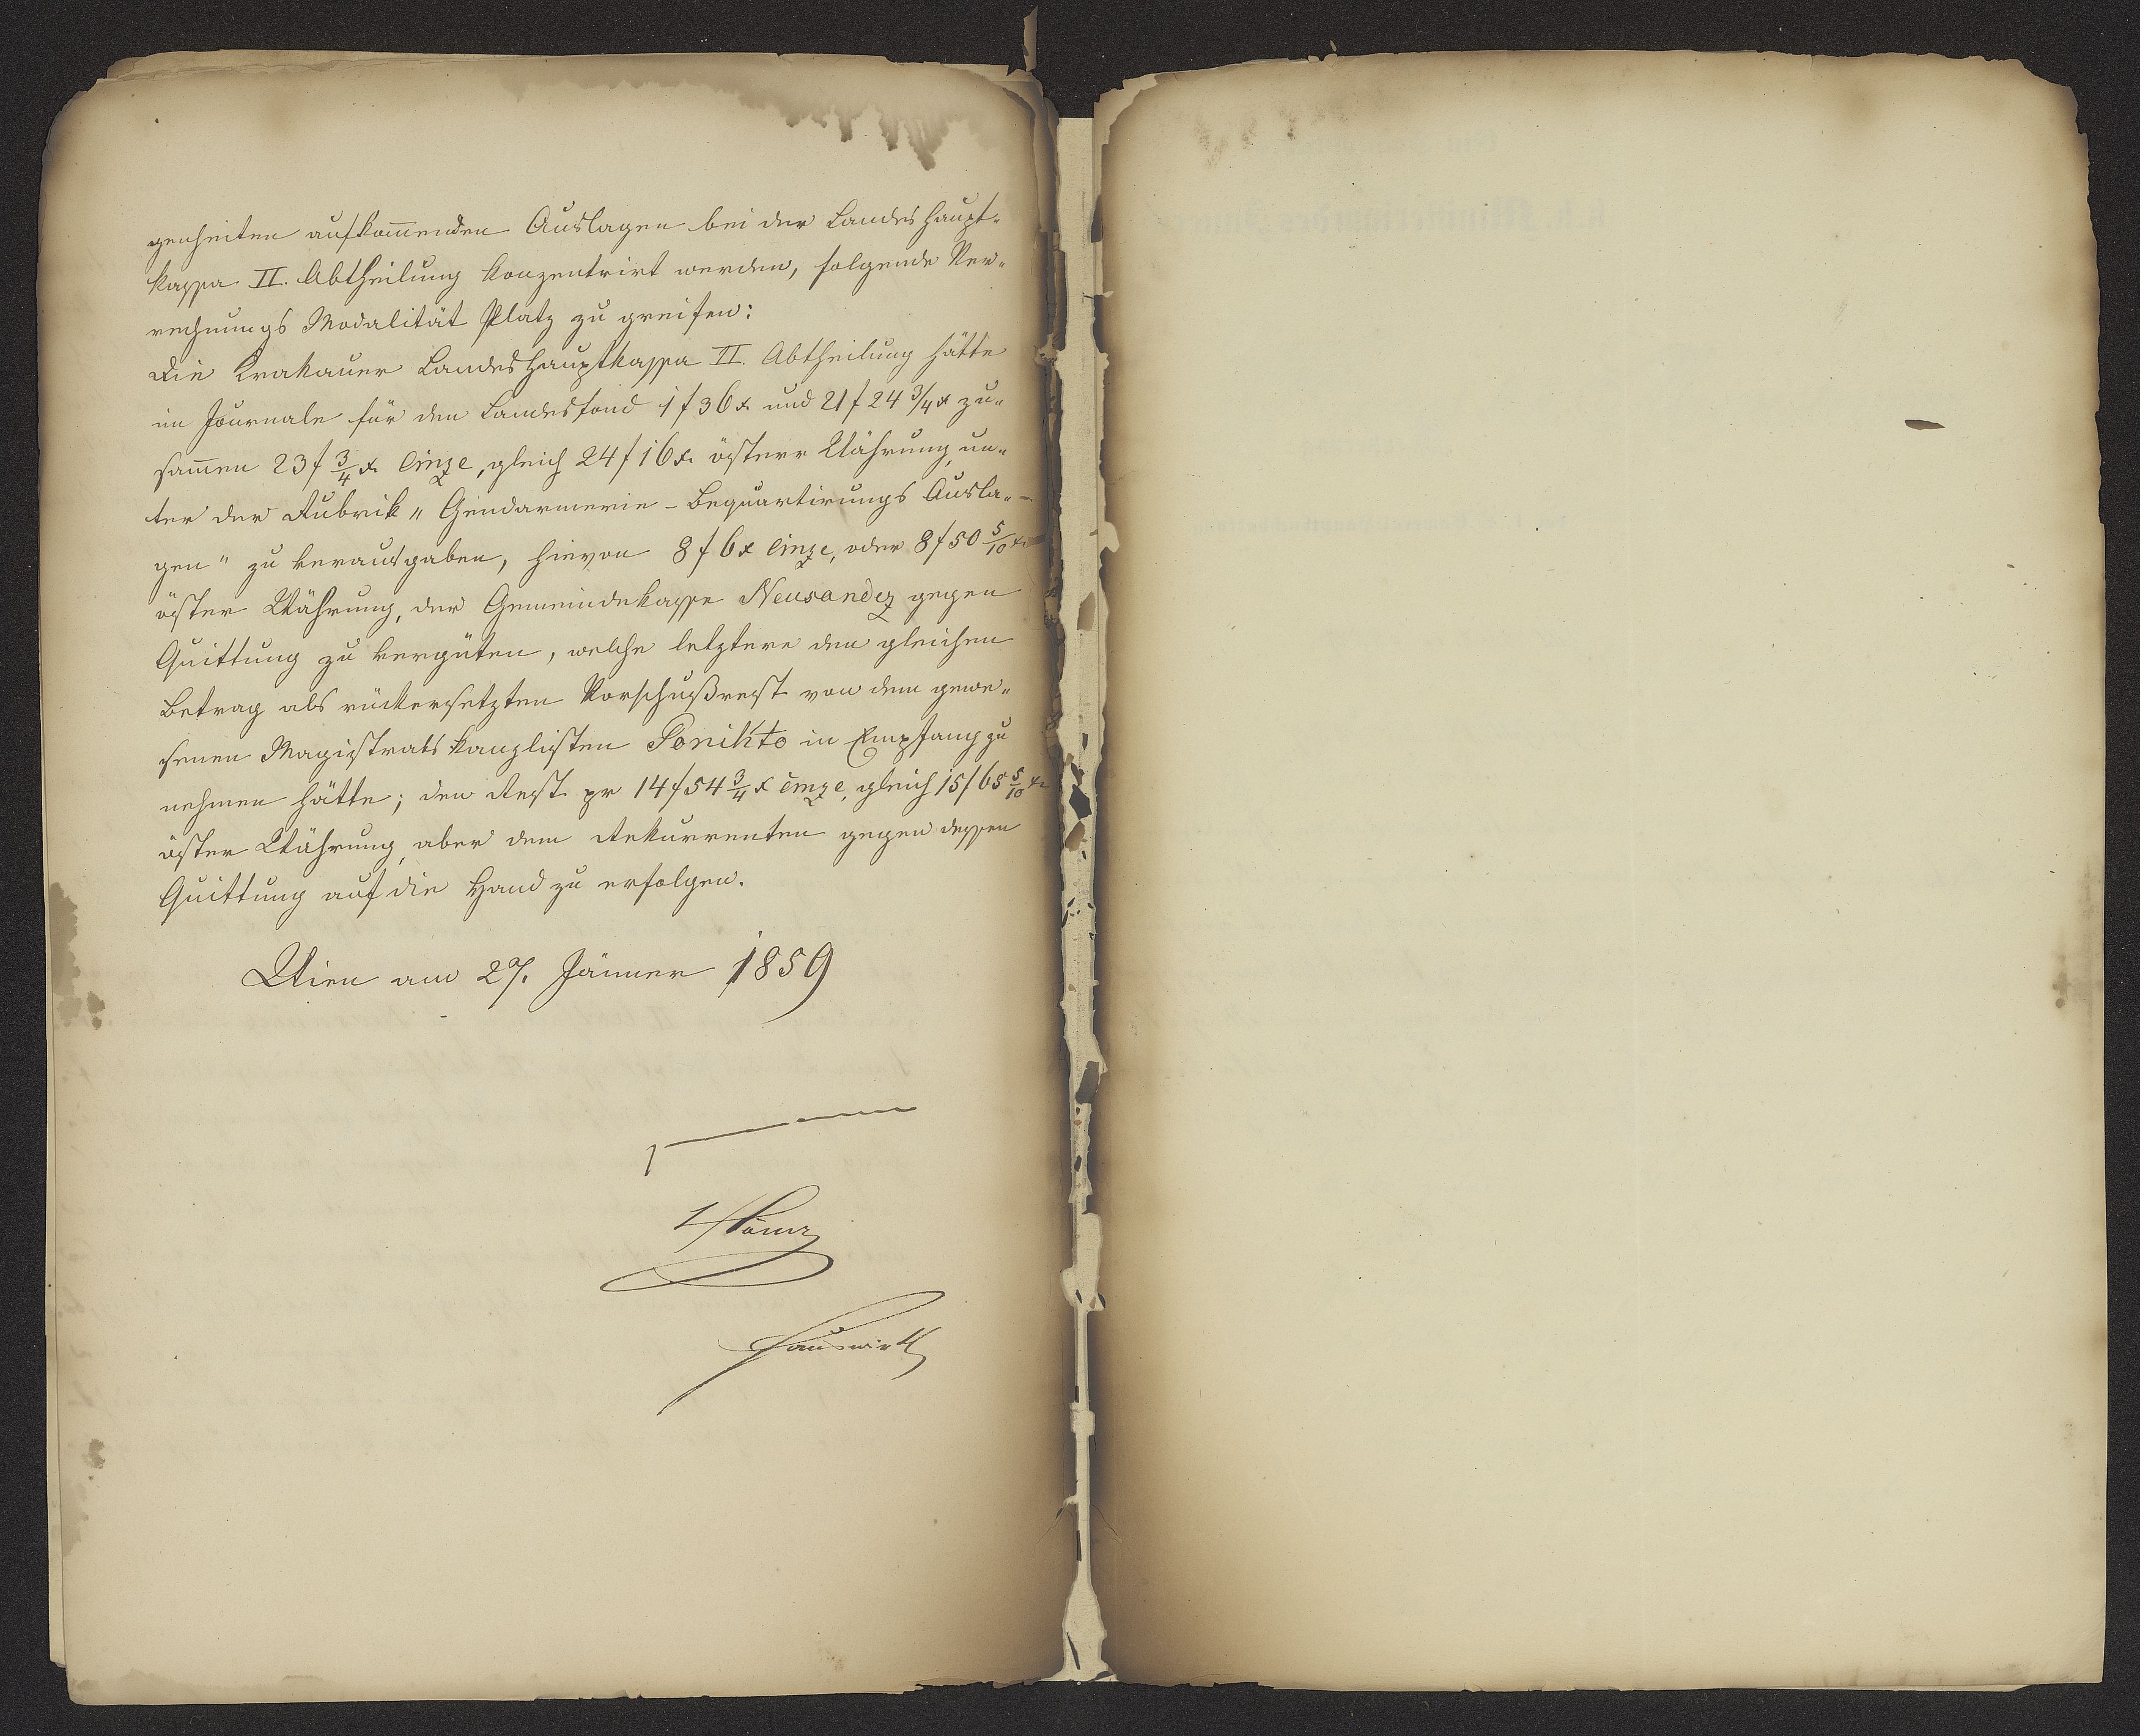 genheiten aufkom̅enden Auslagen bei der Landeshaupt-
kassa II. Abtheilung konzentrirt werden, folgende Ver-
rechnungs Modalität Platz zu greifen:
Die Krakauer Landeshauptkassa II. Abtheilung hätte
im Journale für den Landesfond 1 f 36 x und 21 f 24 3/4 x zu-
sam̅en 23 f 3/4 x Cmze, gleich 24 f 16 x österr Währung, un-
ter der Rubrik „Gendarmerie-Bequartirungs Ausla-
gen" zu verausgaben, hievon 8 f 6 x Cmze, oder 8 f 50 5/10 x
öster Währung, der Gemeindekasse Neusandez gegen
Quittung zu vergüten, welche letztere den gleichen
Betrag als rückersetzten Vorschußrest von dem gewe-
senen Magistratskanzlisten Ponikto in Empfang zu
nehmen hätte; den Rest pr 14 f 54 3/4 x Cmze, gleich 15 f 65 5/10 x
öster Währung, aber dem Rekurrenten gegen dessen
Quittung auf die Hand zu erfolgen.
Wien am 27. Jänner 1859
Hauswirth